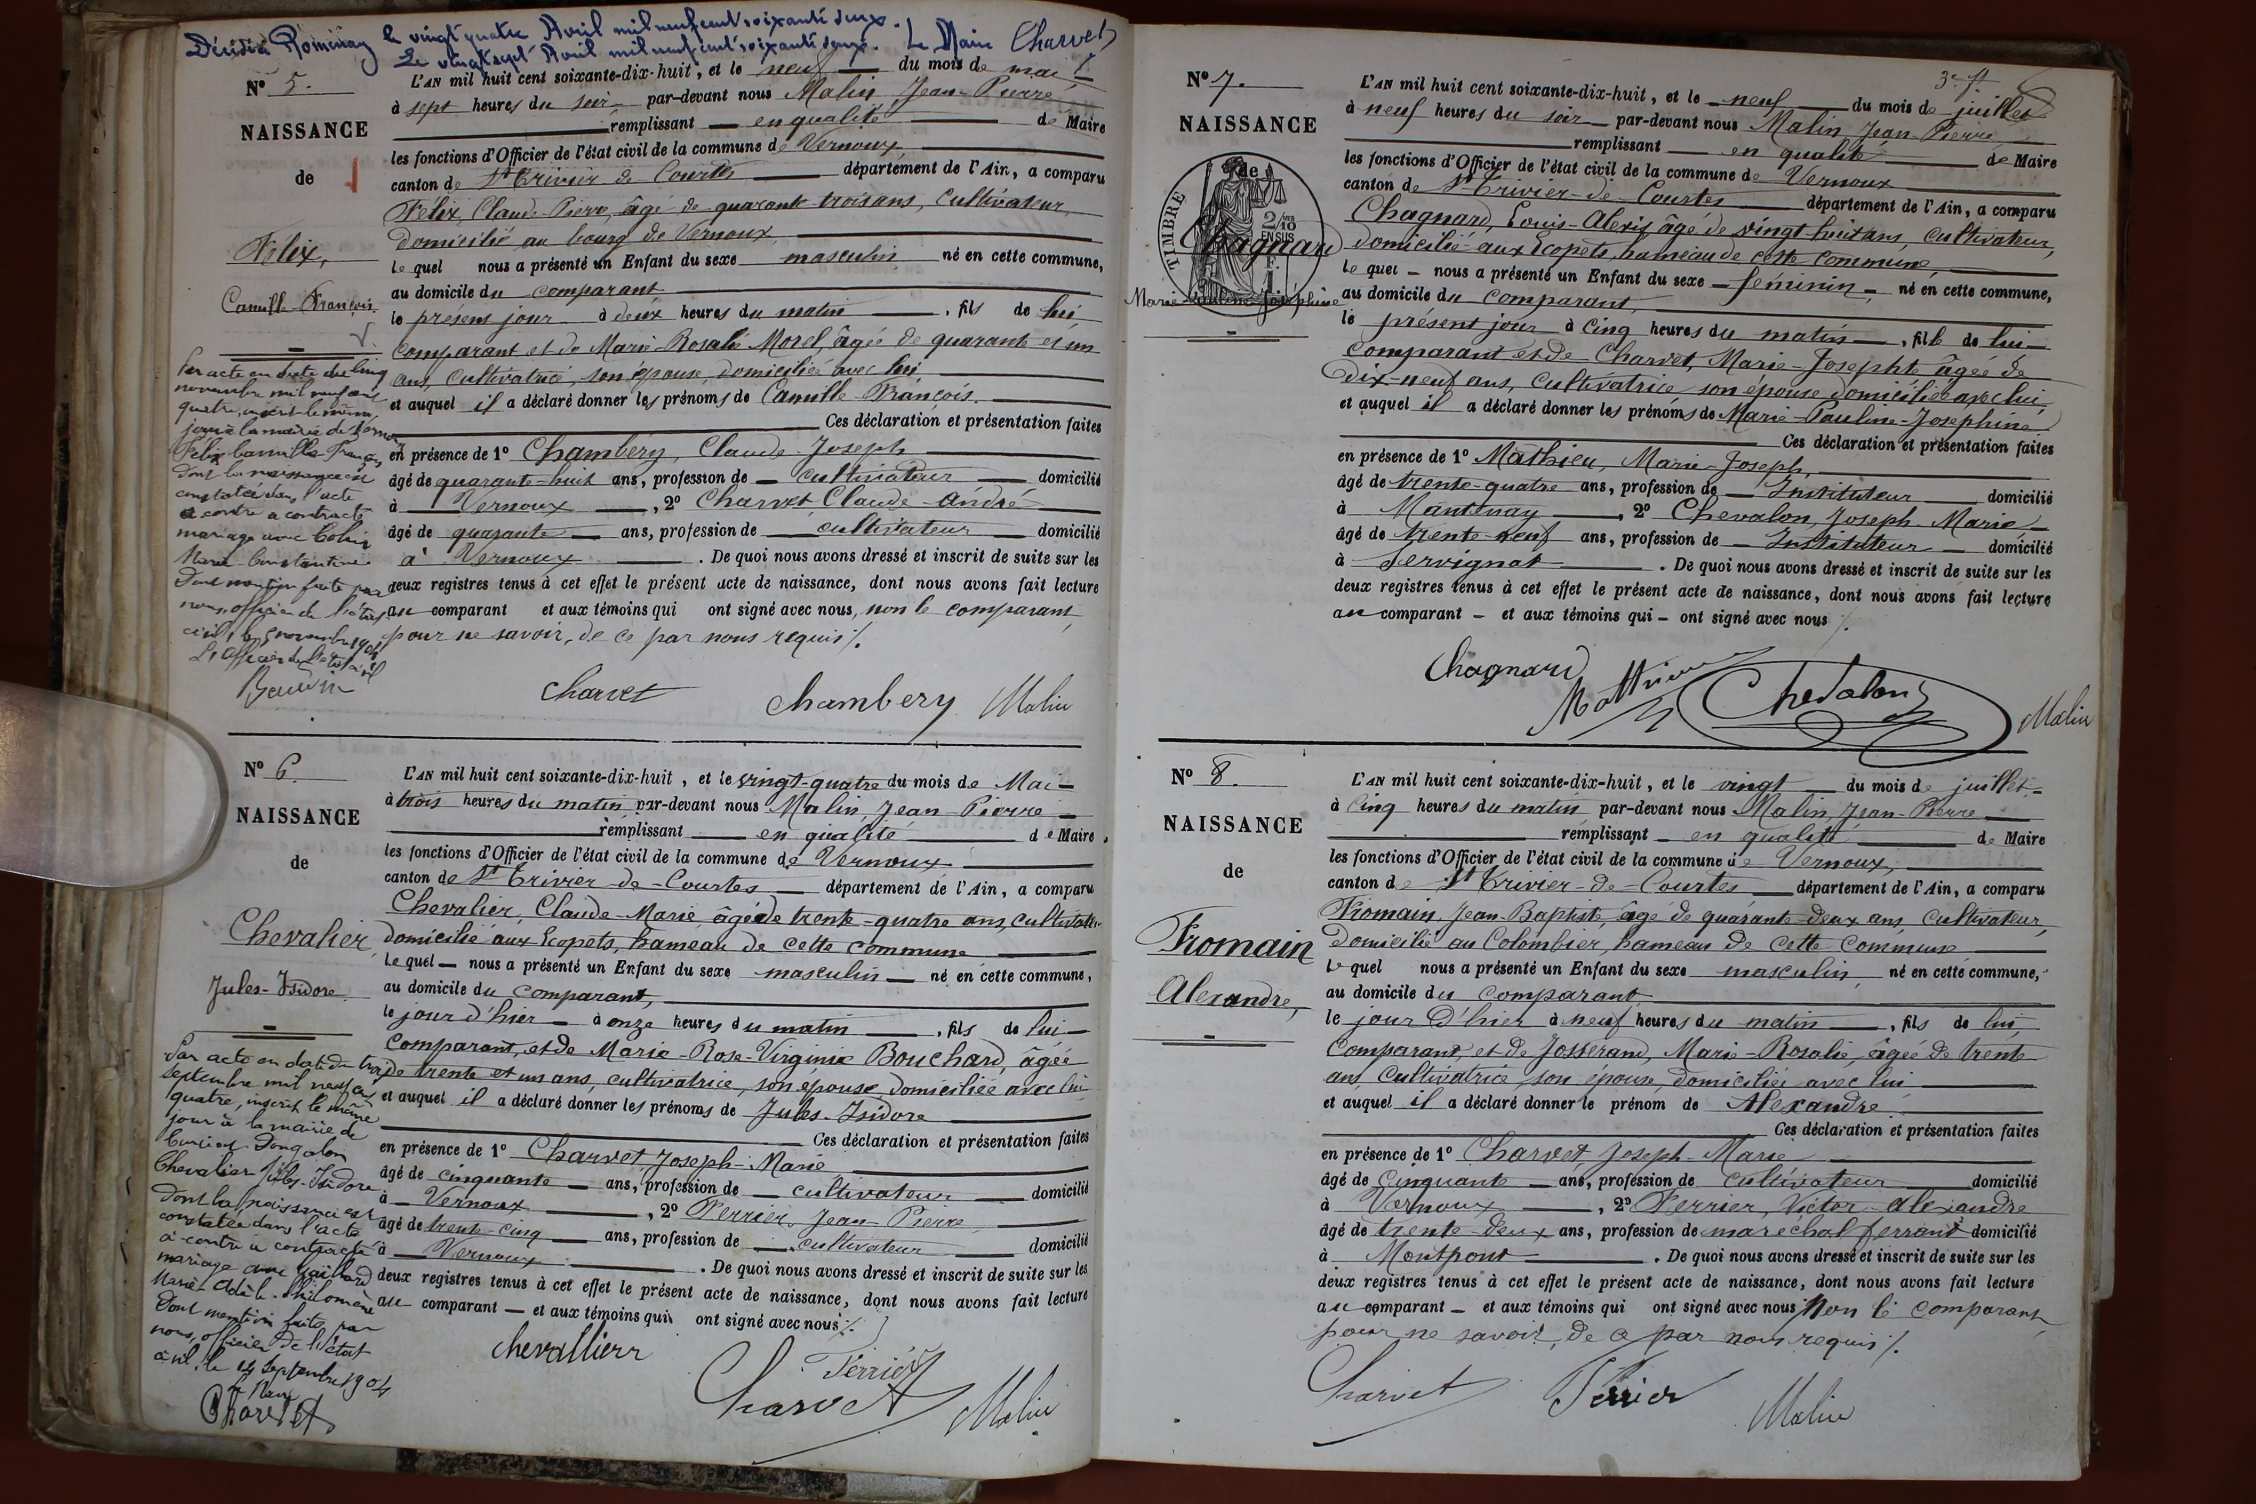 Décédé à Romenay le vingt quatre Avril mil neuf cent soixante deux.
Le vingt sept Avril mil neuf cent soixante deux. Le Maire Charvet
N° 5.
NAISSANCE
de
Félix,
Camille François.
Par acte en date du cinq
novembre mil neuf cent
quatre, inscrit le même
jour à la mairie de Vernoux
Félix Camille François
dont la naissance est
constatée dans l'acte
ci contre a contracté
mariage avec Colin
Marie Constantine
Dont mention faite par
nous, officier de l'état
civil, le 5 novembre 1904
L'officier de l'état civil
L'AN mil huit cent soixante-dix-huit, et le neuf du mois de mai
à sept heures du soir par-devant nous Malin Jean-Pierre
remplissant en qualité de Maire
les fonctions d'Officier de l'état civil de la commune de Vernoux
canton de St Trivier de Courtes département de l'Ain, a comparu
Félix, Claude-Pierre, âgé de quarante trois ans, cultivateur,
domicilié au bourg de Vernoux
lequel nous a présenté un Enfant du sexe masculin né en cette commune,
au domicile du comparant
le présent jour à deux heures du matin, fils de lui
comparant et de Marie-Rosalie Morel, âgée de quarante et un
ans, cultivatrice, son épouse, domiciliée avec lui
et auquel il a déclaré donner les prénoms de Camille François.
Ces déclaration et présentation faites
en présence de 1° Chambery, Claude Joseph
âgé de quarante-huit ans, profession de cultivateur domicilié
à Vernoux, 2° Charvet Claude-André
âgé de quarante ans, profession de cultivateur domicilié
à Vernoux. De quoi nous avons dressé et inscrit de suite sur les
deux registres tenus à cet effet le présent acte de naissance, dont nous avons fait lecture
au comparant et aux témoins qui ont signé avec nous, non le comparant,
pour ne savoir, de ce par nous requis /.
Charvet Chambery Malin
N° 6.
NAISSANCE
de
Chevalier,
Jules-Isidore.
Par acte en date du trois
septembre mil neuf cent
quatre, inscrit le même
jour à la mairie de
Curciat-Dongalon
Chevalier Jules-Isidore
dont la naissance est
constatée dans l'acte
ci-contre a contracté
mariage avec Gaillard
Marie-Adèle-Philomène
Dont mention faite par
nous, officier de l'état
civil, le 14 Septembre 1904
Le Maire
Charvet
L'AN mil huit cent soixante-dix-huit, et le vingt-quatre du mois de Mai
à trois heures du matin par-devant nous Malin, Jean-Pierre
remplissant en qualité de Maire
les fonctions d'Officier de l'état civil de la commune de Vernoux
canton de St Trivier-de-Courtes département de l'Ain, a comparu
Chevalier, Claude-Marie âgé de trente-quatre ans, cultivateur
domicilié aux Ecopets, hameau de cette commune
lequel nous a présenté un Enfant du sexe masculin né en cette commune,
au domicile du comparant,
le jour d'hier à onze heures du matin, fils de lui
comparant, et de Marie-Rose-Virginie Bouchard, âgée
de trente et un ans, cultivatrice, son épouse, domiciliée avec lui
et auquel il a déclaré donner les prénoms de Jules-Isidore
Ces déclaration et présentation faites
en présence de 1° Charvet, Joseph-Marie
âgé de cinquante ans, profession de cultivateur domicilié
à Vernoux, 2° Perrier, Jean-Pierre
âgé de trente-cinq ans, profession de cultivateur domicilié
à Vernoux. De quoi nous avons dressé et inscrit de suite sur les
deux registres tenus à cet effet le présent acte de naissance, dont nous avons fait lecture
au comparant et aux témoins qui ont signé avec nous /.
Chevallierr Perrier
Charvet Malin
3e f
N° 7.
NAISSANCE
de
TIMBRE
2/10
EN SUS
Chagnard
Marie-Pauline-Joséphine
L'AN mil huit cent soixante-dix-huit, et le neuf du mois de juillet
à neuf heures du soir par-devant nous Malin, Jean-Pierre
remplissant en qualité de Maire
les fonctions d'Officier de l'état civil de la commune de Vernoux
canton de St Trivier-de-Courtes département de l'Ain, a comparu
Chagnard, Louis-Alexis âgé de vingt-huit ans, cultivateur,
domicilié aux Ecopets, hameau de cette commune,
lequel nous a présenté un Enfant du sexe féminin, né en cette commune,
au domicile du comparant,
le présent jour à cinq heures du matin, fille de lui
comparant et de Charvet, Marie-Josephte âgée de
dix-neuf ans, cultivatrice son épouse domiciliée avec lui
et auquel il a déclaré donner les prénoms de Marie-Pauline-Josephine
Ces déclaration et présentation faites
en présence de 1° Mathieu, Marie-Joseph,
âgé de trente-quatre ans, profession de Instituteur domicilié
à Mantenay, 2° Chevalon, Joseph-Marie
âgé de trente-neuf ans, profession de Instituteur domicilié
à Servignat. De quoi nous avons dressé et inscrit de suite sur les
deux registres tenus à cet effet le présent acte de naissance, dont nous avons fait lecture
au comparant et aux témoins qui ont signé avec nous /.
Chagnard Mathieu Chevalon Malin
N° 8.
NAISSANCE
de
Fromain
Alexandre,
L'AN mil huit cent soixante-dix-huit, et le vingt du mois de juillet
à cinq heures du matin par-devant nous Malin, Jean-Pierre
remplissant en qualité de Maire
les fonctions d'Officier de l'état civil de la commune de Vernoux,
canton de St Trivier-de-Courtes département de l'Ain, a comparu
Fromain, Jean-Baptiste, âgé de quarante-deux ans, cultivateur,
domicilié au Colombier, hameau de cette commune
lequel nous a présenté un Enfant du sexe masculin, né en cette commune,
au domicile du comparant
le jour d'hier à neuf heures du matin, fils de lui,
comparant, et de Josserand, Marie-Rosalie, âgée de trente
ans, cultivatrice, son épouse, domiciliée avec lui
et auquel il a déclaré donner le prénom de Alexandre
Ces déclaration et présentation faites
en présence de 1° Charvet, Joseph-Marie
âgé de cinquante ans, profession de cultivateur domicilié
à Vernoux, 2° Perrier, Victor-Alexandre
âgé de trente-deux ans, profession de maréchal ferrant domicilié
à Montpont. De quoi nous avons dressé et inscrit de suite sur les
deux registres tenus à cet effet le présent acte de naissance, dont nous avons fait lecture
au comparant et aux témoins qui ont signé avec nous Non le comparant
pour ne savoir, de ce par nous requis /.
Charvet Perrier Malin